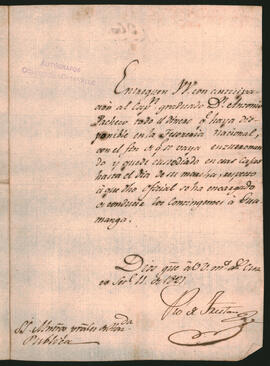 Entreguen VV. con anticipa-
cion al Cap.n graduado D.n Antonio
Pacheco todo el dinero q.e haya dis-
ponible en la Tesoreria Nacional,
con el fin de q.e vaya encaxonan-
do y quede custodiado en esas Cajas
hasta el dia de su marcha, respecto
à que dho oficial se ha encargado
de conducir los contingentes à Gua
manga.
Dios gũe à VV. m.s a.s Cuz-
co 11 de 1821
Pio de Tristan
S.S. Mntros de Hda
Publica